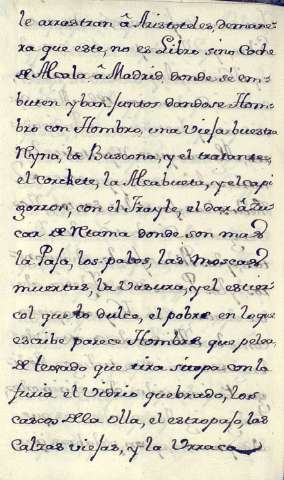 le arrastran â Aristoteles demane-
ra que este, no es Libro sino Coche
de Alcala â Madrid donde sé em-
buten y ban juntos dandose Hom-
bro con Hombro, una Vieja buestra
Ñyna, la Buscona, y el tratantes,
el corchete, la Alcabueta, y el capi
gorron, con el Frayle, el dar â Zu-
car de Retama donde son mas
la Paja, los palos, las moscas
muertas, la Vasura, y el estier-
col que lo dulce, el pobre en lo que
escribe parece Hombre que pelea,
de tejado que tira siropa con la
furia el Vidrio quebrado, los
cascos de la olla, el estropajo, las
calzas viejas, y la Urraca